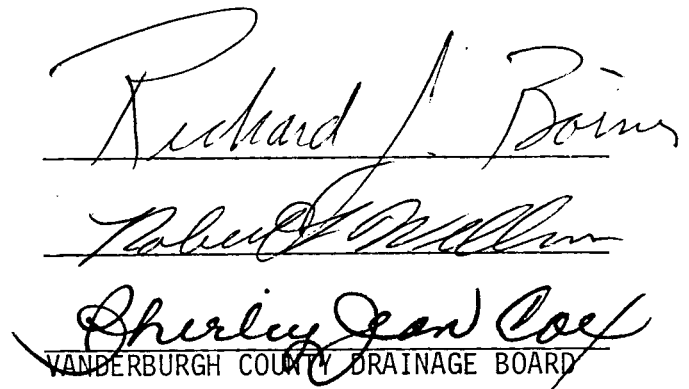 Richard J. Borries
Robert L. Willner
Shirley Jean Cox
VANDERBURGH COUNTY DRAINAGE BOARD